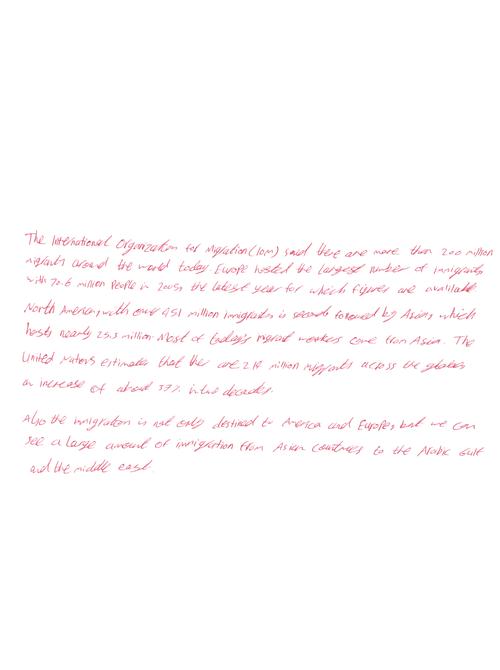 The International Organization for Migration (IOM) said there are more than 200 million
migrants around the world today Europe hosted the largest number of immigrants
with 70.6 million People in 2005, the latest year for which figures are available
North America, with over 45.1 million immigrants is second, followed by Asia, which
hosts nearly 25.3 million. Most of today's migrant workers come from Asia. The
United Nations estimates that ther are 214 million migrants across the globe,
an increase of about 37% in two decades.
Also the immigration is not only destined to America and Europe, but we can
see a large amount of immigration from Asian Countries to the Arabic Gulf
and the middle east.